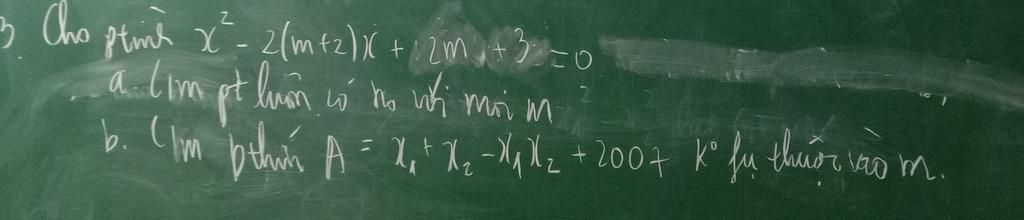 3 Cho ptrình x² - 2(m+2)x + 2m + 3 = 0
a. C/m pt luôn có no với mọi m
b. C/m bthức A = x₁ + x₂ - x₁x₂ + 2007 k° fụ thuộc vào m.